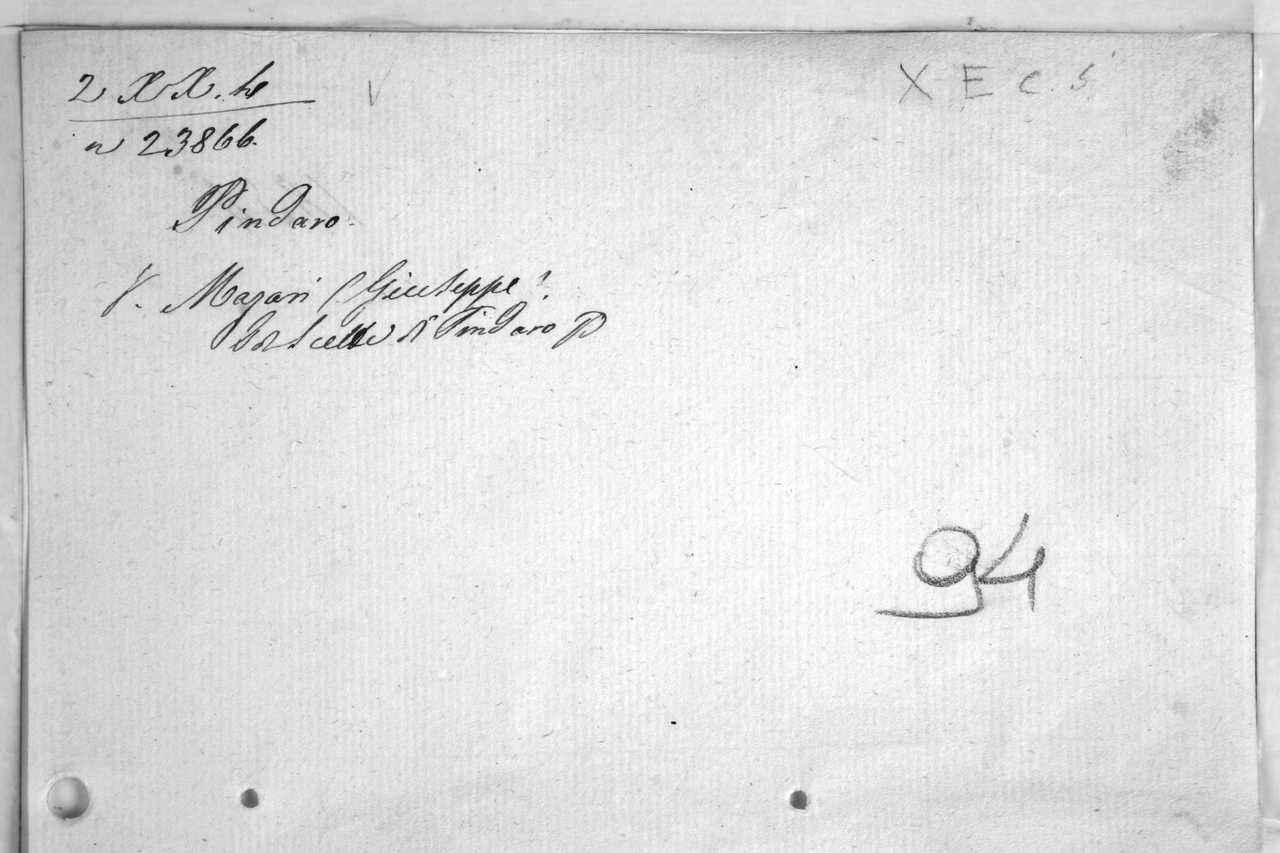 2 XX. h
X E C. 5
n 23866.
Pindaro.
V. Mazari (Giuseppe)
Odi scelte di Pindaro
94